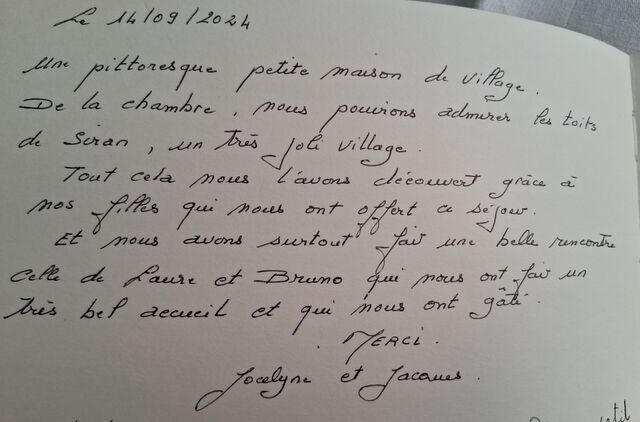 Le 14/09/2024
Une pittoresque petite maison de village.
De la chambre, nous pouvions admirer les toits
de Siran, un très joli village.
Tout cela nous l'avons découvert grâce à
nos filles qui nous ont offert ce séjour.
Et nous avons surtout fait une belle rencontre
celle de Laure et Bruno qui nous ont fait un
très bel accueil et qui nous ont gâté.
MERCI.
Jocelyne et Jacques.